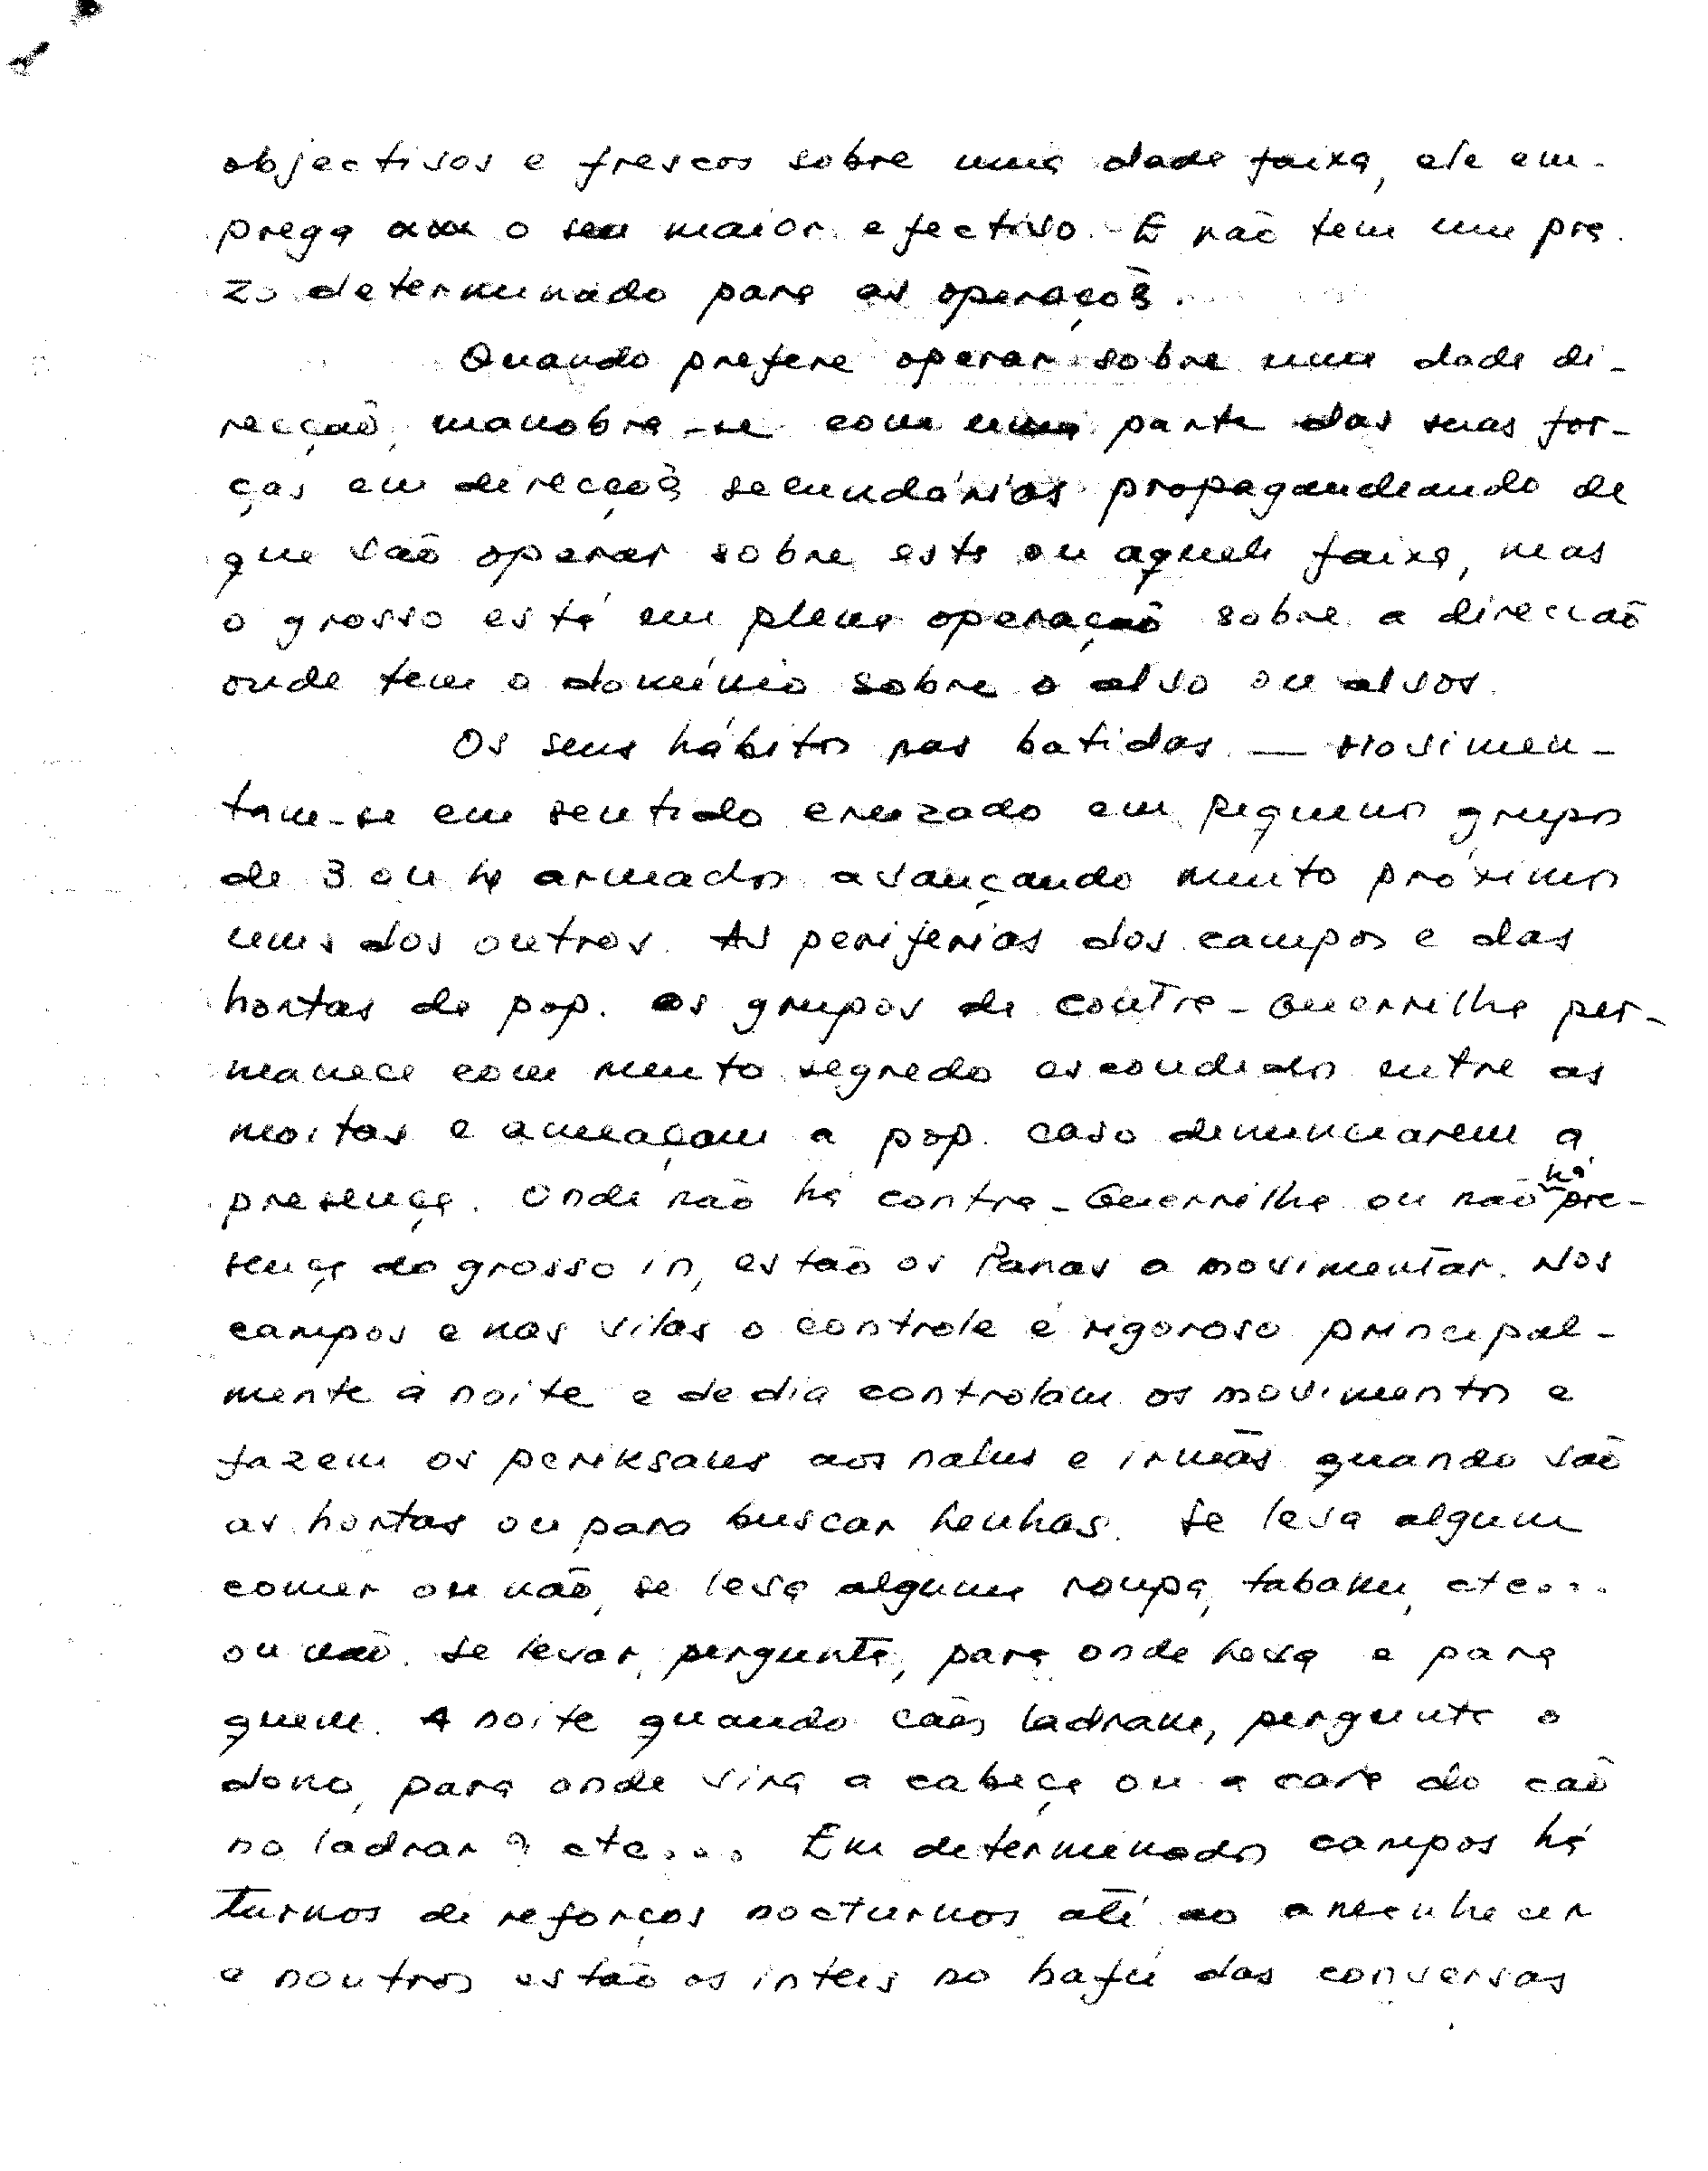 objectivos e frescos sobre uma dada faixa, ele em-
prega o seu maior efectivo. E não tem um pra
zo determinado para as operações.
Quando prefere operar sobre uma dada di-
recção, manobra-se com uma parte das suas for-
ças em direcções secundárias propagandeando de
que vão operar sobre esta ou aquela faixa, mas
o grosso está em plena operação sobre a direcção
onde tem o domínio sobre o alvo ou alvos.
Os seus hábitos nas batidas — Movimen-
tam-se em sentido cruzado em pequenos grupos
de 3 ou 4 armados avançando muito próximos
uns dos outros. As periferias dos campos e das
hortas de pop. os grupos de contra-Guerrilha per-
manece com muito segredo escondidos entre as
moitas e ameaçam a pop. caso denunciarem a
presença. Onde não há contra-Guerrilha ou não há pre-
sença do grosso in, estão os Panas a movimentar. Nos
campos e nas vilas o controle é rigoroso principal-
mente à noite e de dia controlam os movimentos e
fazem os periksaus aos nalus e irmãs quando vão
as hortas ou para buscar lenhas. Se leva algum
comer ou não, se leva alguma roupa, tabaku, etc...
ou não. Se levar, pergunta, para onde leva e para
quem. A noite quando cães ladram, pergunta o
dono, para onde vira a cabeça ou a cara do cão
no ladrar? etc... Em determinados campos há
turnos de reforços nocturnos até ao amanhecer
e noutros estão os inteis no bafú das conversas